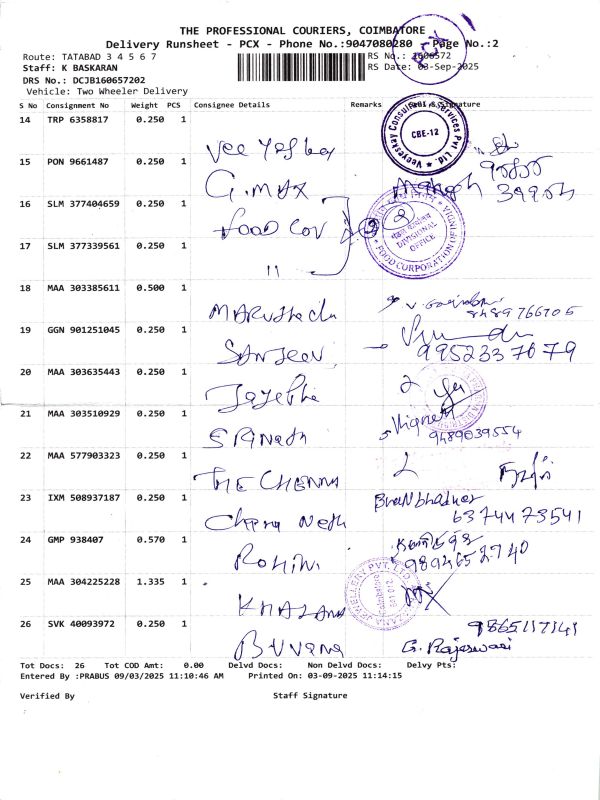 THE PROFESSIONAL COURIERS, COIMBATORE
Delivery Runsheet - PCX - Phone No.:9047080280 - Page No.:2
Route: TATABAD 3 4 5 6 7
RS No.: 1606572
Staff: K BASKARAN
RS Date: 03-Sep-2025
DRS No.: DCJB160657202
Vehicle: Two Wheeler Delivery
S No Consignment No Weight PCS Consignee Details Remarks Signature
14 TRP 6358817 0.250 1
Veeyeskay Consultancy Services Pvt. Ltd.
CBE-12
15 PON 9661487 0.250 1
G. MAX
16 SLM 377404659 0.250 1
FOOD COV
DIVISIONAL OFFICE
FOOD CORPORATION OF INDIA
17 SLM 377339561 0.250 1
11
18 MAA 303385611 0.500 1
8489766705
19 GGN 901251045 0.250 1
SANJEEV
9952337079
20 MAA 303635443 0.250 1
21 MAA 303510929 0.250 1
SRINATH
Vignesh
9489039554
22 MAA 577903323 0.250 1
THE CHENNA
23 IXM 508937187 0.250 1
6374473541
24 GMP 938407 0.570 1
ROHINI
9894652740
25 MAA 304225228 1.335 1
KHAZANA
JEWELLERY PVT. LTD.
26 SVK 40093972 0.250 1
BUVANA
9865117141
G. Rajeswari
Tot Docs: 26 Tot COD Amt: 0.00 Delvd Docs: Non Delvd Docs: Delvy Pts:
Entered By :PRABUS 09/03/2025 11:10:46 AM Printed On: 03-09-2025 11:14:15
Verified By Staff Signature